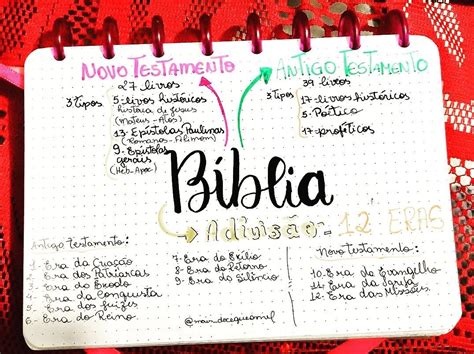 NOVO TESTAMENTO
27 livros
3 tipos
5 - livros históricos
história de Jesus
(Mateus - Atos)
13 - Epístolas Paulinas
(Romanos - Filimom)
9 - Epístolas
gerais
(Heb - Apoc)
ANTIGO TESTAMENTO
39 livros
3 tipos
17 - livros históricos
5 - Poético
17 - proféticos
Bíblia
A divisão - 12 ERAS
Antigo testamento:
1 - Era da Criação
2 - Era dos Patriarcas
3 - Era do Êxodo
4 - Era da Conquista
5 - Era dos juízes
6 - Era do Reino
7 - Era do Exílio
8 - Era do Retorno
9 - Era do Silêncio
Novo testamento:
10. Era do Evangelho
11. Era da Igreja
12. Era das Missões